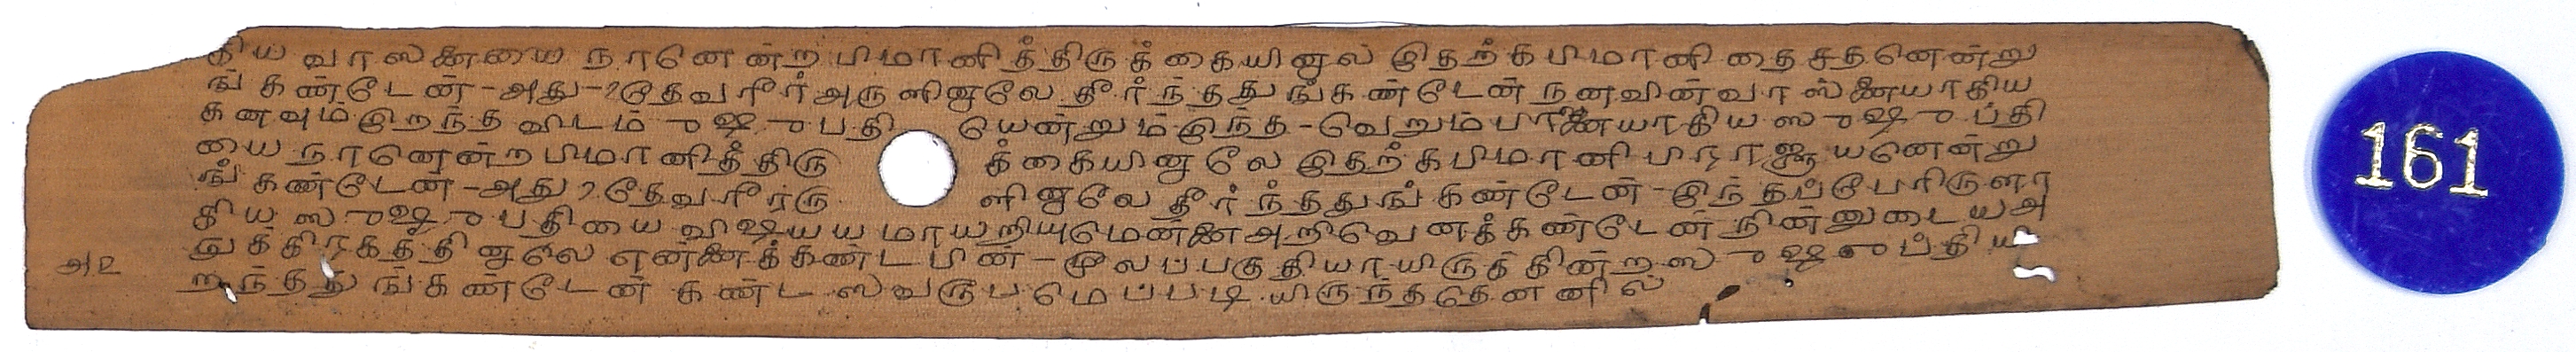 கிய வாஸனையை நானென்றபிமானித்திருக்கையினால் இதற்கபிமானி தைசதனென்று
ங்கண்டேன் - அது - உதேவரீர் அருளினாலே தீர்ந்ததுங்கண்டேன் நனவின் வாஸனையாகிய
கனவும் இறந்த விடம் ுஷுபதி யென்றும் இந்த - வெறும் பானையாகிய ஸுஷுப்தி
யை நானென்றபிமானித்திரு க்கையினாலே இதற்கபிமானி பிராஜ்ஞயனென்று
ங்கண்டேன் - அது உதேவரீரரு ளினாலே தீர்ந்ததுங்கண்டேன் - இந்தப்பேரிருளா
கிய ஸுஷுபதியை விஷயயமாயறியுமென்னை அறிவெனக்கண்டேன் நின்னுடைய அ
நுக்கிரகத்தினாலே என்னைக்கண்டபின் - மூலப்பகுதியாயிருக்கின்ற ஸுஷுப்தியி
றந்ததுங்கண்டேன் கண்ட ஸவரூபமெப்படியிருந்ததெனனில்
அ௨
161